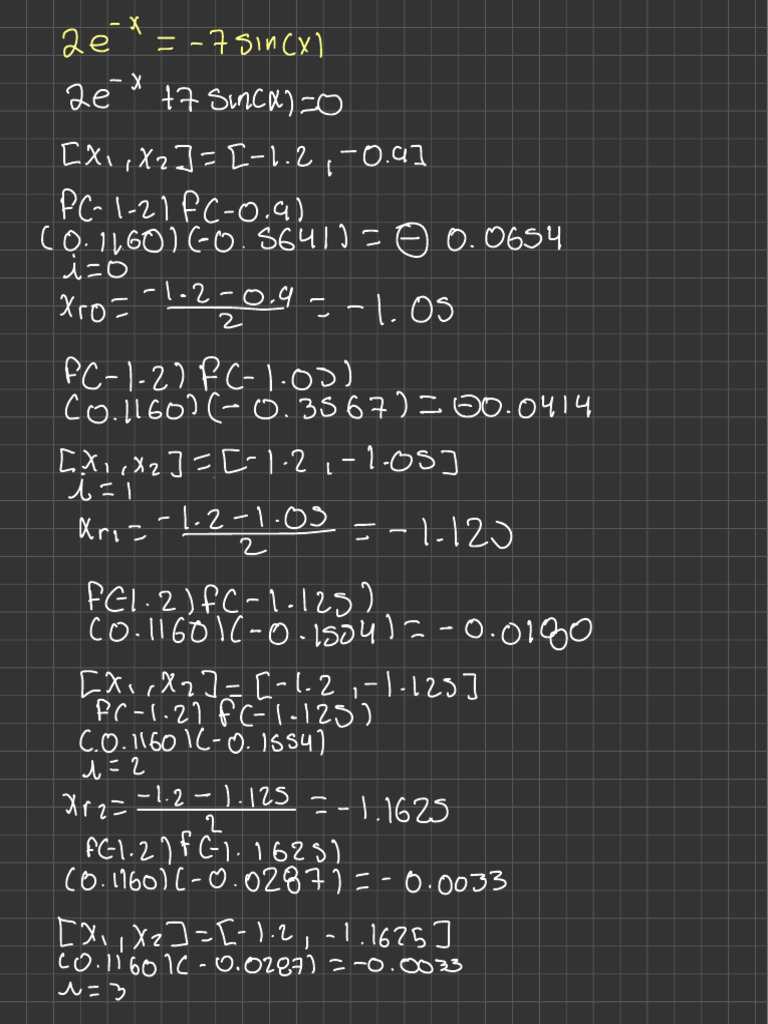 2e^-x = -7 sin(x)
2e^-x +7 sin(x)=0
[x₁, x₂] = [-1.2, -0.9]
f(-1.2) f(-0.9)
(0.1160)(-0.5641) = ⊖ 0.0654
i=0
xr0 = (-1.2-0.9)/2 = -1.05
f(-1.2) f(-1.05)
(0.1160)(-0.3567) = ⊖0.0414
[x₁, x₂] = [-1.2, -1.05]
i=1
xr1 = (-1.2-1.05)/2 = -1.125
f(-1.2) f(-1.125)
(0.1160)(-0.1554) = -0.0180
[x₁, x₂] = [-1.2, -1.125]
f(-1.2) f(-1.125)
(0.1160)(-0.1554)
i=2
xr2 = (-1.2-1.125)/2 = -1.1625
f(-1.2) f(-1.1625)
(0.1160)(-0.0287) = -0.0033
[x₁, x₂] = [-1.2, -1.1625]
(0.1160)(-0.0287) = -0.0033
i=3